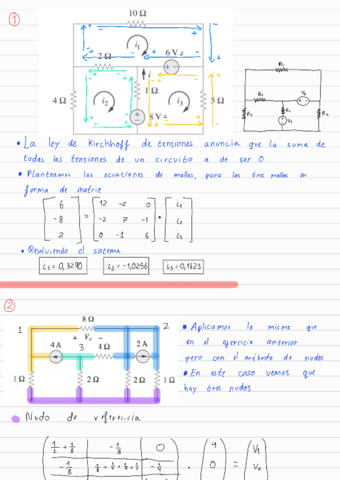 1
10 Ω
i₁
6 V
2 Ω
i
1 Ω
4 Ω
i₂
i₃
5 Ω
8 V
• La ley de Kirchhoff de tensiones anuncia que la suma de
todas las tensiones de un circuito a de ser 0
• Planteamos las ecuaciones de mallas, para los tres mallas en
forma de matriz
[6 -8 2] = [12 -2 0 | -2 7 -1 | 0 -1 6] · [i₁ i₂ i₃]
• Resolviendo el sistema
i₁ = 0,3290 i₂ = -1,0256 i₃ = 0,1623
2
8 Ω
1 + Vₒ - 2
4 A 3 4 Ω 2 A
1 Ω 2 Ω 2 Ω 1 Ω
• Aplicamos lo mismo que
en el ejercicio anterior
pero con el método de nudos
• En este caso vemos que
hay tres nudos
• Nudo de referencia
1/1 + 1/8 -1/8 0 4 V₁
-1/8 0